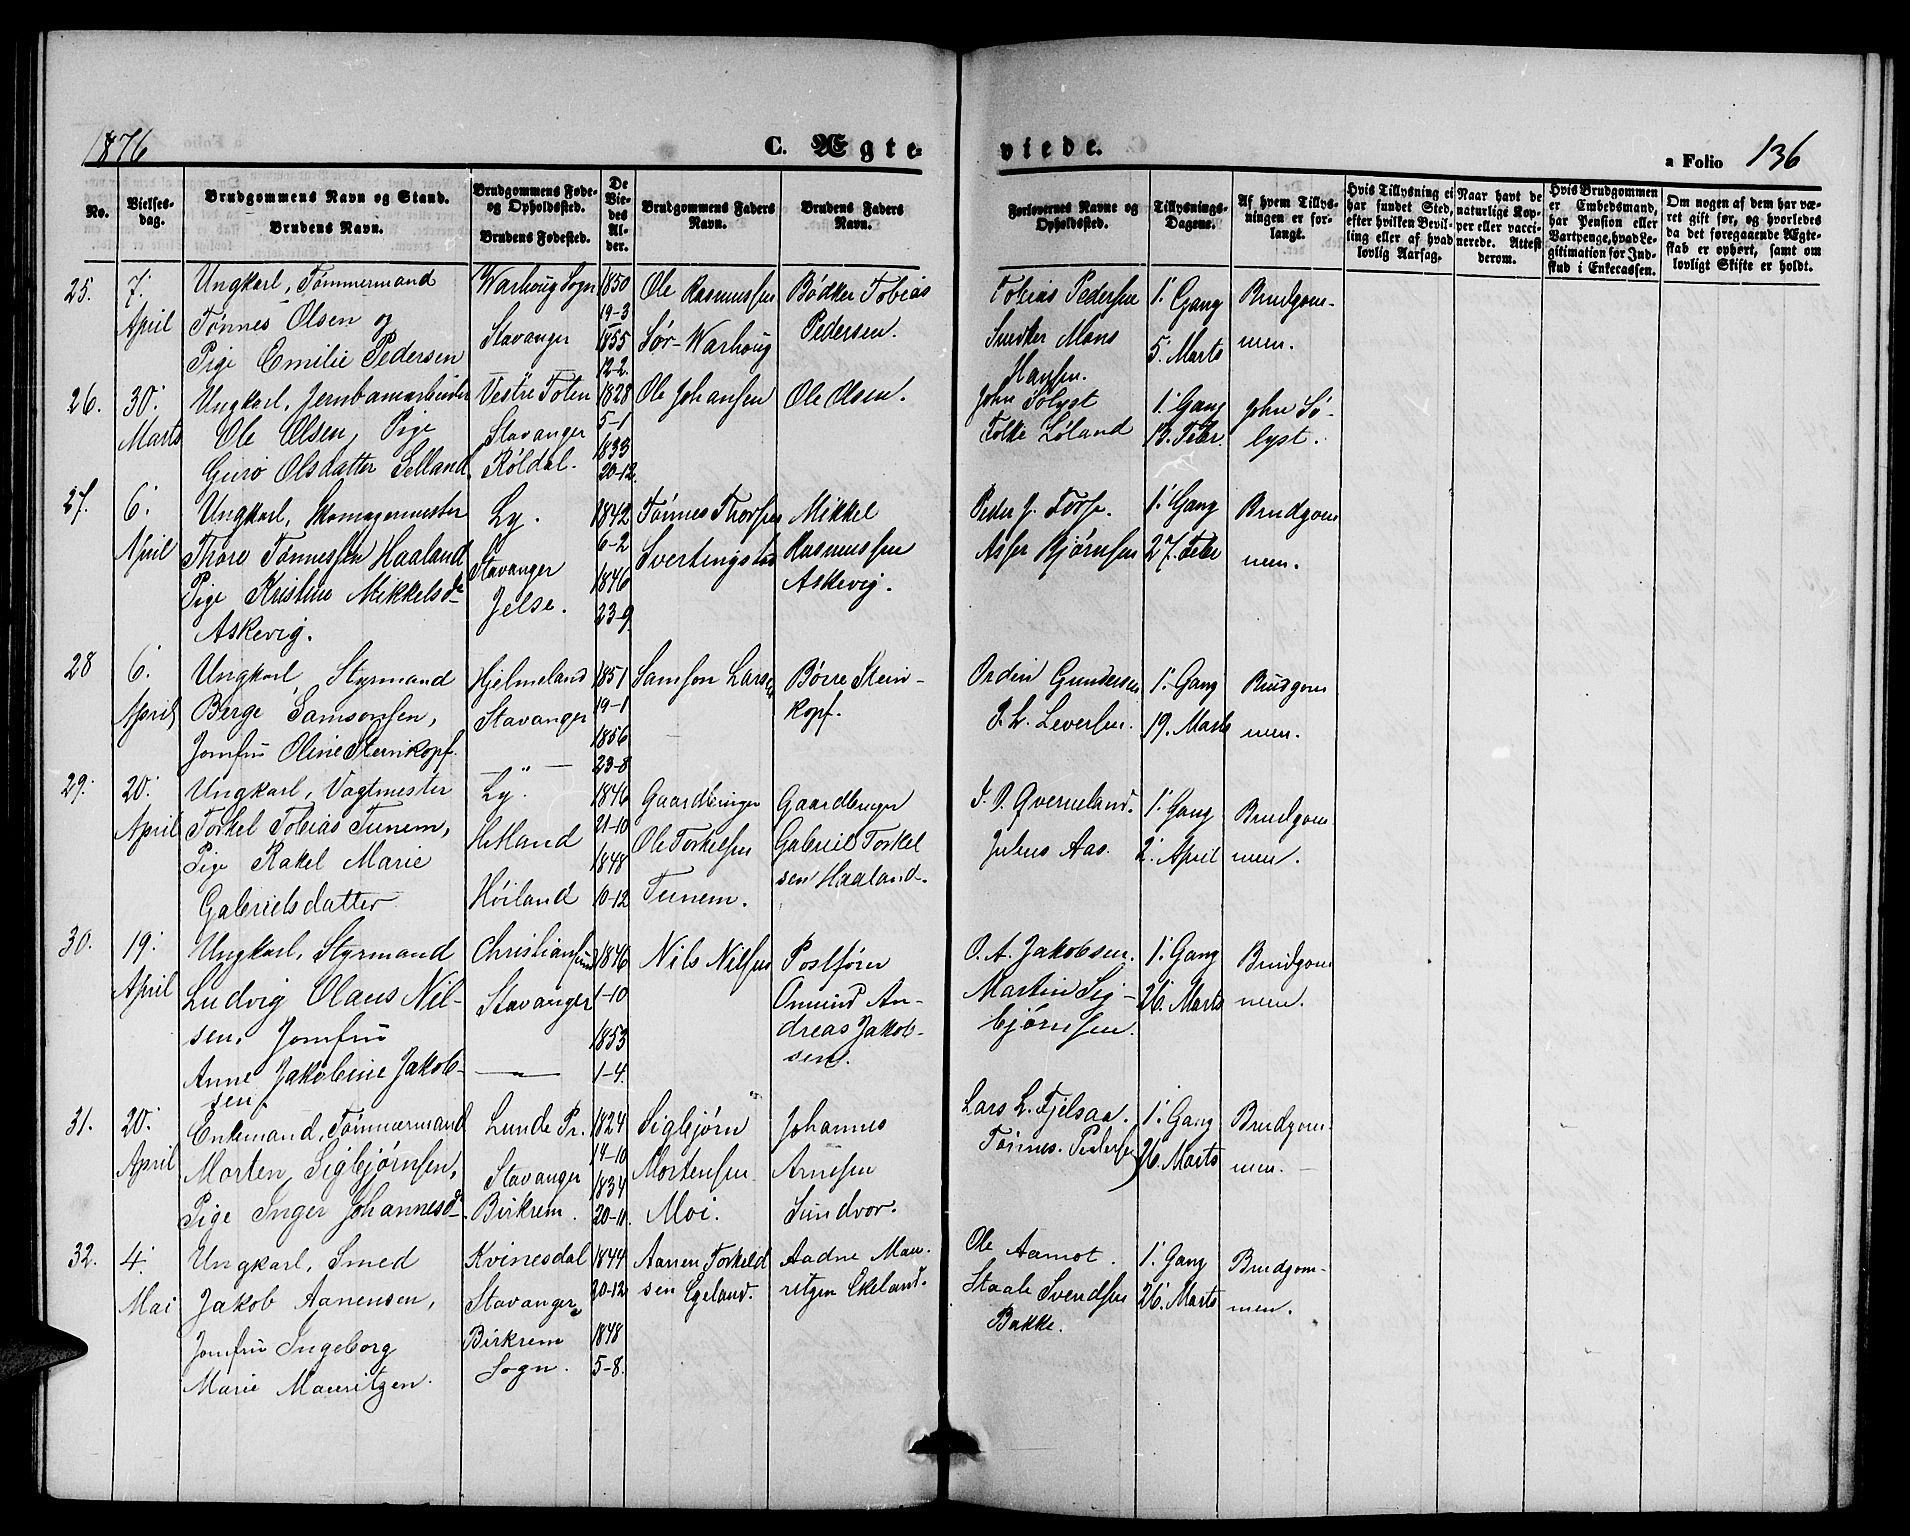 1876
C. Ægte-
viede.
a Folio 136
No.
Vielses-
dag.
Brudgommens Navn og Stand.
Brudens Navn.
Brudgommens Føde-
og Opholdssted.
Brudens Fødested.
De
Vie-
des
Al-
der.
Brudgommens Faders
Navn.
Brudens Faders
Navn.
Forlovernes Navne og
Opholdssted.
Tillysnings-
Dagene.
Af hvem Tillys-
ningen er for-
langt.
Hvis Tillysning ei
har fundet Sted,
efter hvilken Bevil-
ling eller af hvad
lovlig Aarsag.
Naar havt de
naturlige Kop-
per eller vacci-
nerede. Attest
derom.
Hvis Brudgommen
er Embedsmand,
har Pension eller
Vartpenge, hvad Le-
gitimation for Ind-
skud i Enkecassen.
Om nogen af dem har væ-
ret gift før, og hvorledes
da det foregaaende Ægte-
skab er ophørt, samt om
lovligt Skifte er holdt.
25.
7.
April
Ungkarl, Tømmermand
Tønnes Olsen og
Pige Emilie Pedersen
Warhoug Sogn
Stavanger
1850
19-3
1855
12-2.
Ole Rasmussen
Sør-Warhoug
Bødker Tobias
Pedersen.
Tobias Pedersen
Snedker Mons
Hansen.
1. Gang
5. Marts
Brudgom-
men.
26.
30.
Marts
Ungkarl, Jernbanearbeider
Ole Olsen, Pige
Guro Olsdatter Selland
Vestre Toten
Stavanger
Røldal.
1828
5-1
1833
20-12.
Ole Johansen
Ole Olsen.
John Sølyst
Tolke Løland
1. Gang
13. Febr.
John Sø-
lyst.
27.
6.
April
Ungkarl, Skomagermester
Thore Tønnessen Haaland
Pige Kristine Mikkelsd
Askevig.
Ly.
Stavanger
Jelse.
1842
6-2
1846
23-9
Tønnes Thorsen
Svertingstad
Mikkel
Rasmussen
Askevig.
Peder J. Torp.
Asser Bjørnsen
1. Gang
27. Febr
Brudgom
men.
28
6.
April
Ungkarl, Styrmand
Berge Samsonsen,
Jomfru Oline Steinkopf.
Hjelmeland
Stavanger
— " —
1851
19-1
1856
23-8
Samson Larsen
Børre Stein-
kopf.
Ordin Gundersen
1. Gang
19. Marts
Brudgom
men.
29.
20.
April
Ungkarl, Vagtmester
Torkel Tobias Tunem,
Pige Rakel Marie
Gabrielsdatter
Ly.
Hetland
Høiland
1846
21-10
1848
10-12
Gaardbruger
Ole Torkelsen
Tunem.
Gaardbruger
Gabriel Torkel
sen Haaland.
Julius Aas.
1. Gang
2. April
Brudgom
men.
30.
19.
April
Ungkarl, Styrmand
Ludvig Olaus Nil-
sen, Jomfru
Anne Jakobine Jakob-
sen
Christiansund
Stavanger
—
1846
1-10
1853
1-4.
Nils Nilsen
Postfører
Omund An-
dreas Jakob-
sen.
O. A. Jakobsen.
Martin Sig-
bjørnsen.
1. Gang
26. Marts
Brudgom
men.
31.
20.
April
Enkemand, Tømmermand
Morten Sigbjørnsen,
Pige Inger Johannesd
Lunde Pr.
Stavanger
Birkrem.
1824
14-10
1834
20-11.
Sigbjørn
Mortensen
Moi.
Johannes
Arnesen
Sundvor.
Lars L. Fjelsaa.
Tønnes Pedersen
1. Gang
26. Marts
Brudgom
men.
32.
4.
Mai
Ungkarl, Smed
Jakob Aanensen,
Jomfru Ingeborg
Marie Mauritzen.
Kvinesdal
Stavanger
Birkrem
Sogn.
1844
20-12
1848
5-8.
Aanen Torkeld
sen Egeland.
Aadne Mau-
ritzen Ekeland.
Ole Aamot.
Staale Svendsen
Bakke.
1. Gang
26. Marts
Brudgom-
men.